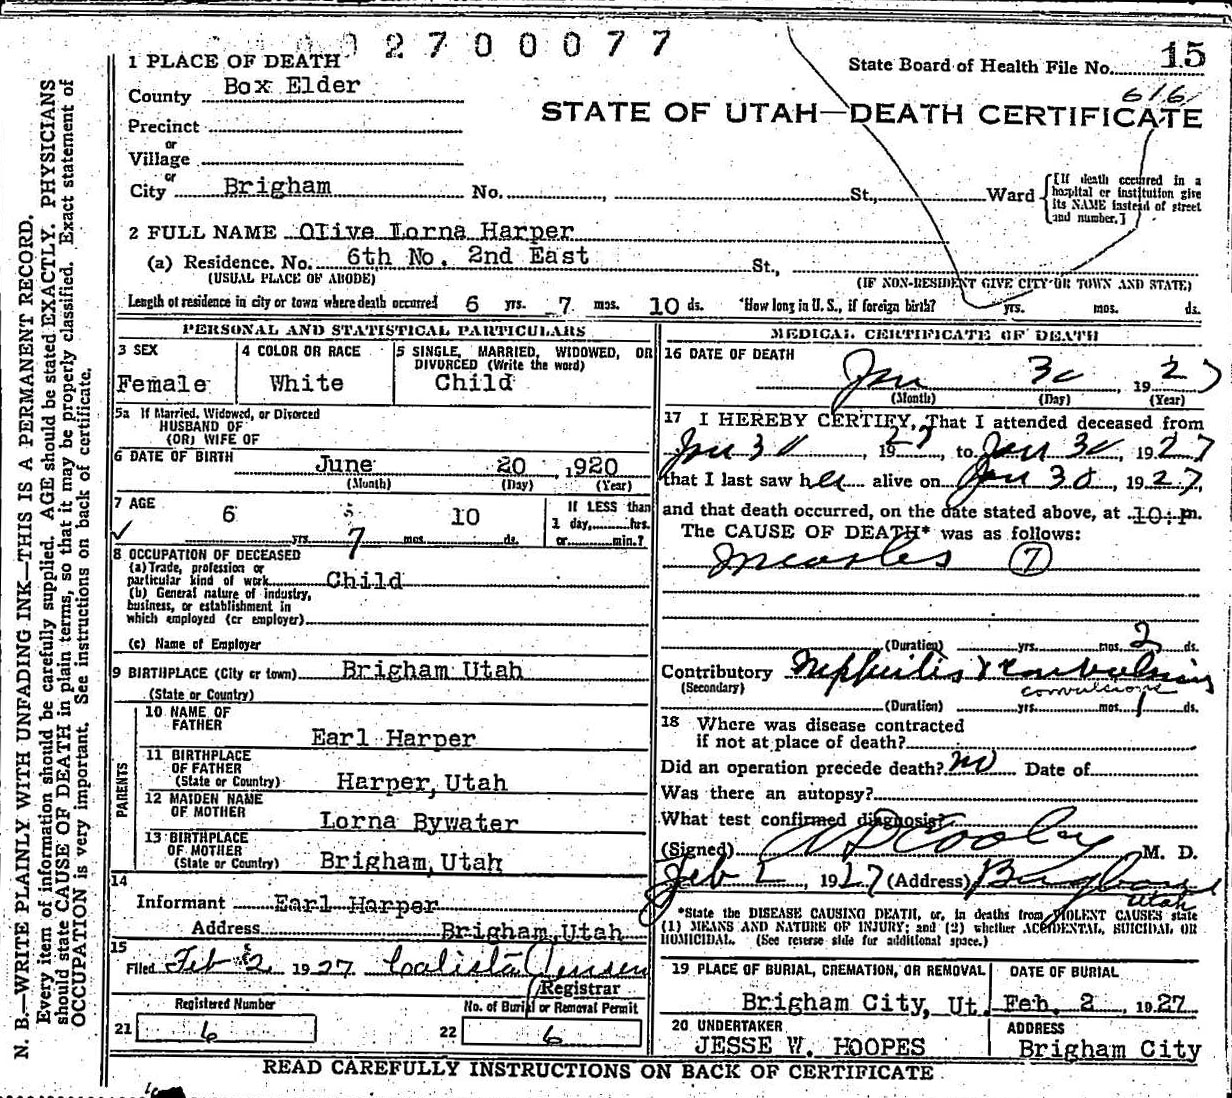 2700077
1 PLACE OF DEATH
State Board of Health File No. 15
County Box Elder
616
STATE OF UTAH—DEATH CERTIFICATE
Precinct
or
Village
or
City Brigham No. , St., Ward [If death occurred in a hospital or institution give its NAME instead of street and number.]
2 FULL NAME Olive Lorna Harper
(a) Residence. No. 6th No. 2nd East St.,
(USUAL PLACE OF ABODE) (IF NON-RESIDENT GIVE CITY OR TOWN AND STATE)
Length of residence in city or town where death occurred 6 yrs. 7 mos. 10 ds. *How long in U. S., if foreign birth? yrs. mos. ds.
PERSONAL AND STATISTICAL PARTICULARS
3 SEX
Female
4 COLOR OR RACE
White
5 SINGLE, MARRIED, WIDOWED, OR
DIVORCED (Write the word)
Child
5a If Married, Widowed, or Divorced
HUSBAND OF
(OR) WIFE OF
6 DATE OF BIRTH June 20, 1920
(Month) (Day) (Year)
7 AGE
6 yrs. 7 mos. 10 ds.
If LESS than
1 day, hrs.
or min.?
8 OCCUPATION OF DECEASED
(a) Trade, profession or
particular kind of work Child
(b) General nature of industry,
business, or establishment in
which employed (or employer)
(c) Name of Employer
9 BIRTHPLACE (City or town) Brigham Utah
(State or Country)
PARENTS
10 NAME OF
FATHER
Earl Harper
11 BIRTHPLACE
OF FATHER
(State or Country) Harper, Utah
12 MAIDEN NAME
OF MOTHER Lorna Bywater
13 BIRTHPLACE
OF MOTHER
(State or Country) Brigham, Utah
14
Informant Earl Harper
Address Brigham, Utah
15
Filed Feb 2, 1927 Calista Jensen
Registrar
Registered Number No. of Burial or Removal Permit
21 6 22 6
MEDICAL CERTIFICATE OF DEATH
16 DATE OF DEATH
Jan 30, 1927
(Month) (Day) (Year)
17 I HEREBY CERTIFY, That I attended deceased from
Jan 30, 1927, to Jan 30, 1927
that I last saw her alive on Jan 30, 1927,
and that death occurred, on the date stated above, at 10:P m.
The CAUSE OF DEATH* was as follows:
Measles 7
(Duration) yrs. mos. 2 ds.
Contributory Nephritis & convulsions
(Secondary) convulsions
(Duration) yrs. mos. 1 ds.
18 Where was disease contracted
if not at place of death?
Did an operation precede death? no Date of
Was there an autopsy?
What test confirmed diagnosis?
(Signed) Cooley M. D.
Feb 1, 1927 (Address) Brigham
Utah
*State the DISEASE CAUSING DEATH, or, in deaths from VIOLENT CAUSES state
(1) MEANS AND NATURE OF INJURY; and (2) whether ACCIDENTAL, SUICIDAL OR
HOMICIDAL. (See reverse side for additional space.)
19 PLACE OF BURIAL, CREMATION, OR REMOVAL
Brigham City, Ut.
DATE OF BURIAL
Feb. 2, 1927
20 UNDERTAKER
JESSE W. HOOPES
ADDRESS
Brigham City
READ CAREFULLY INSTRUCTIONS ON BACK OF CERTIFICATE
N. B.—WRITE PLAINLY WITH UNFADING INK—THIS IS A PERMANENT RECORD.
Every item of information should be carefully supplied. AGE should be stated EXACTLY. PHYSICIANS
should state CAUSE OF DEATH in plain terms, so that it may be properly classified. Exact statement of
OCCUPATION is very important. See instructions on back of certificate.